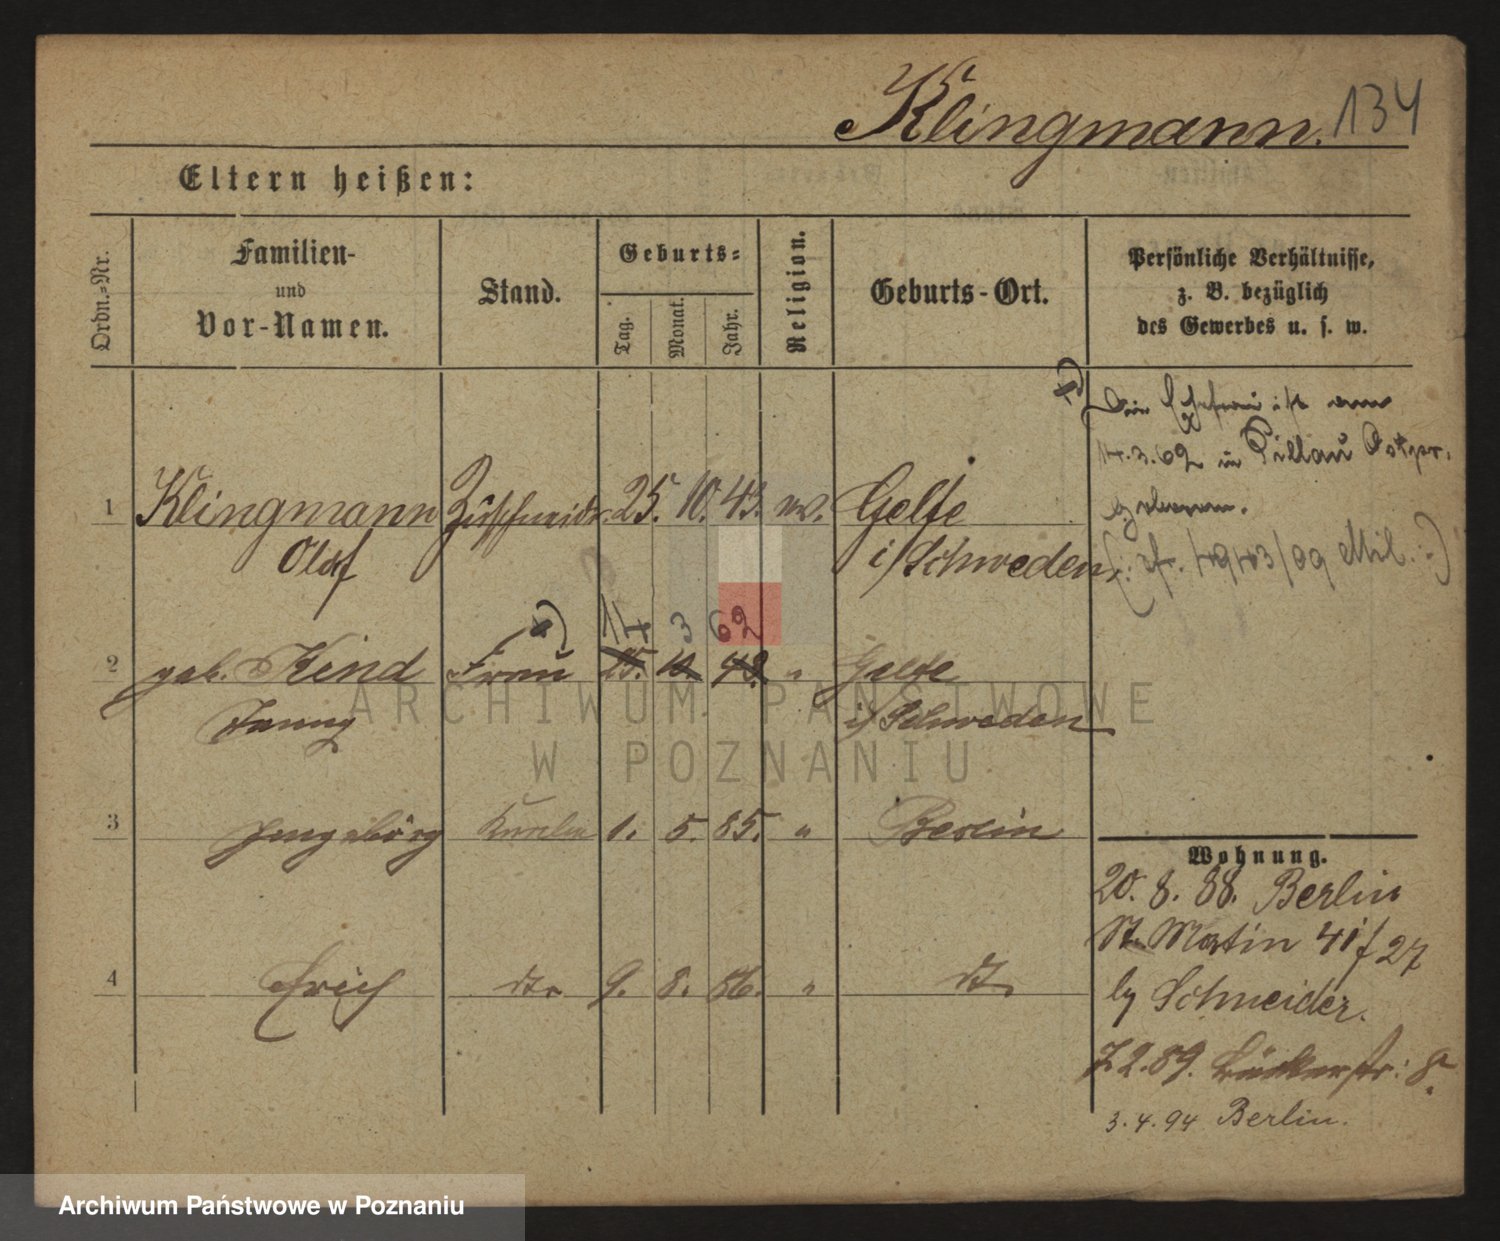 Klingmann. 134
Eltern heißen:
Ordn.-Nr.
Familien-
und
Vor-Namen.
Stand.
Geburts-
Tag.
Monat.
Jahr.
Religion.
Geburts-Ort.
Persönliche Verhältnisse,
z. B. bezüglich
des Gewerbes u. s. w.
Die Ehefrau ist am
14.3.62 in Pillau Ostpr.
geboren.
1 Klingmann Zuschneider 25. 10. 43. ev. Gelfe
Olof i/Schweden
14 3 62
2 geb. Kind Frau 25. 10. 43. " Gelfe
Fanny i/Schweden
3 Ingeborg 1. 5. 85. " Berlin
4 Erich dto 9. 8. 86. " dto
Wohnung.
20. 8. 88. Berlin
St. Martin 41
by Schneider.
7 2. 89. Bäckerstr: 8
3. 4. 94 Berlin.
ARCHIWUM PAŃSTWOWE
W POZNANIU
Archiwum Państwowe w Poznaniu